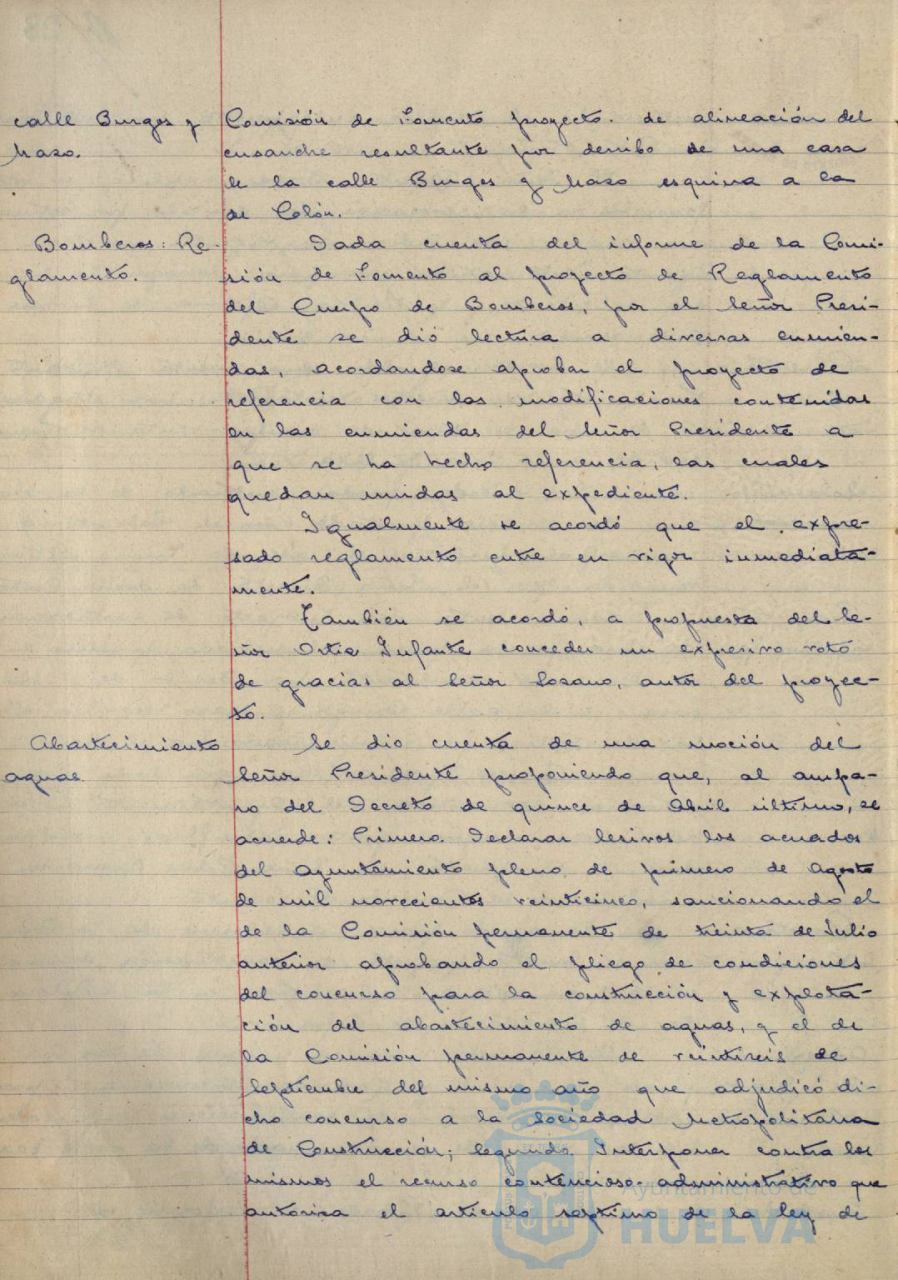 calle Burgos y
Mazo.
Comisión de Fomento proyecto de alineación del
ensanche resultante por derribo de una casa
de la calle Burgos y Mazo esquina a la
de Colón.
Bomberos: Re-
glamento.
Dada cuenta del informe de la Comi-
sión de Fomento al proyecto de Reglamento
del Cuerpo de Bomberos, por el Señor Presi-
dente se dió lectura a diversas enmien-
das, acordandose aprobar el proyecto de
referencia con las modificaciones contenidas
en las enmiendas del Señor Presidente a
que se ha hecho referencia, las cuales
quedan unidas al expediente.
Igualmente se acordó que el expre-
sado reglamento entre en vigor inmediata-
mente.
También se acordó, a propuesta del Se-
ñor Ortiz Infante conceder un expresivo voto
de gracias al Señor Lozano, autor del proyec-
to.
Abastecimiento
aguas.
Se dio cuenta de una moción del
Señor Presidente proponiendo que, al ampa-
ro del Decreto de quince de Abril último, se
acuerde: Primero. Declarar lesivos los acuados
del Ayuntamiento pleno de primero de Agosto
de mil novecientos veinticinco, sancionando el
de la Comisión permanente de treinta de Julio
anterior aprobando el pliego de condiciones
del concurso para la construcción y explota-
ción del abastecimiento de aguas, y el de
la Comisión permanente de veintiseis de
Septiembre del mismo año que adjudicó di-
cho concurso a la Sociedad Metropolitana
de Construcción; Segundo. Interponer contra los
mismos el recurso contencioso-administrativo que
autoriza el artículo septimo de la ley de
Ayuntamiento de
HUELVA